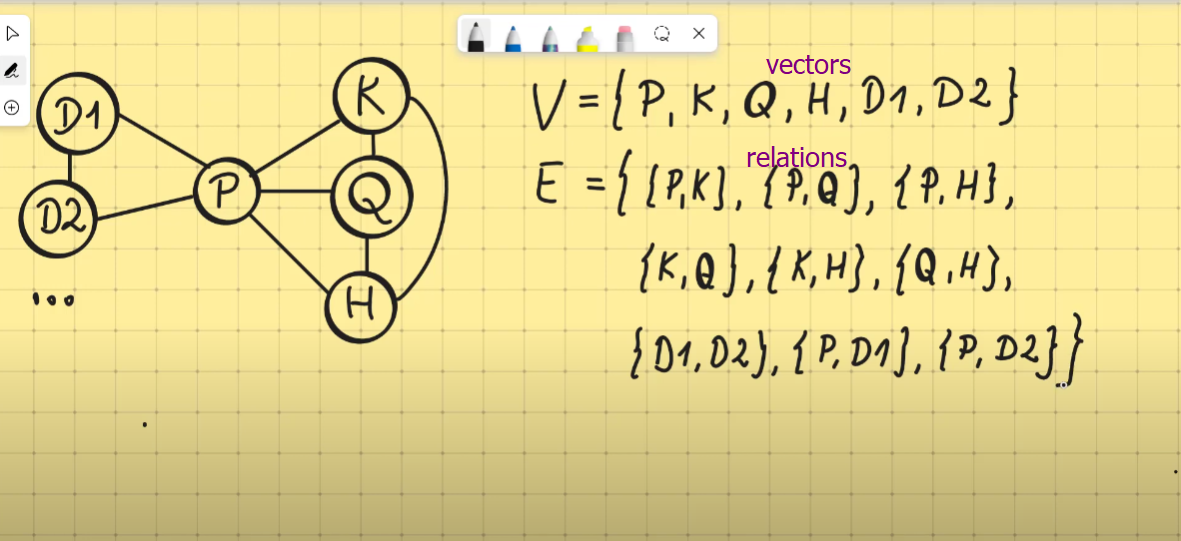 D1
K
D2
P
Q
H
...
vectors
V = { P, K, Q, H, D1, D2 }
relations
E = { {P,K}, {P,Q}, {P,H},
{K,Q}, {K,H}, {Q,H},
{D1,D2}, {P,D1}, {P,D2} }